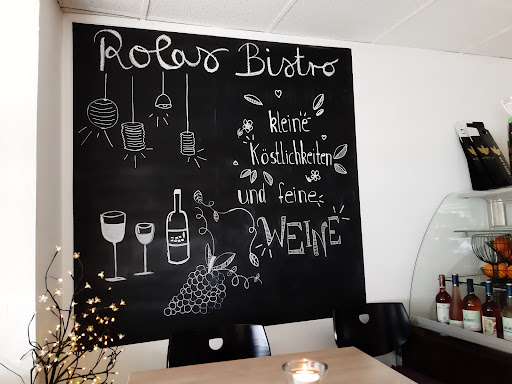 Rolas Bistro
kleine
Köstlichkeiten
und feine
WEINE